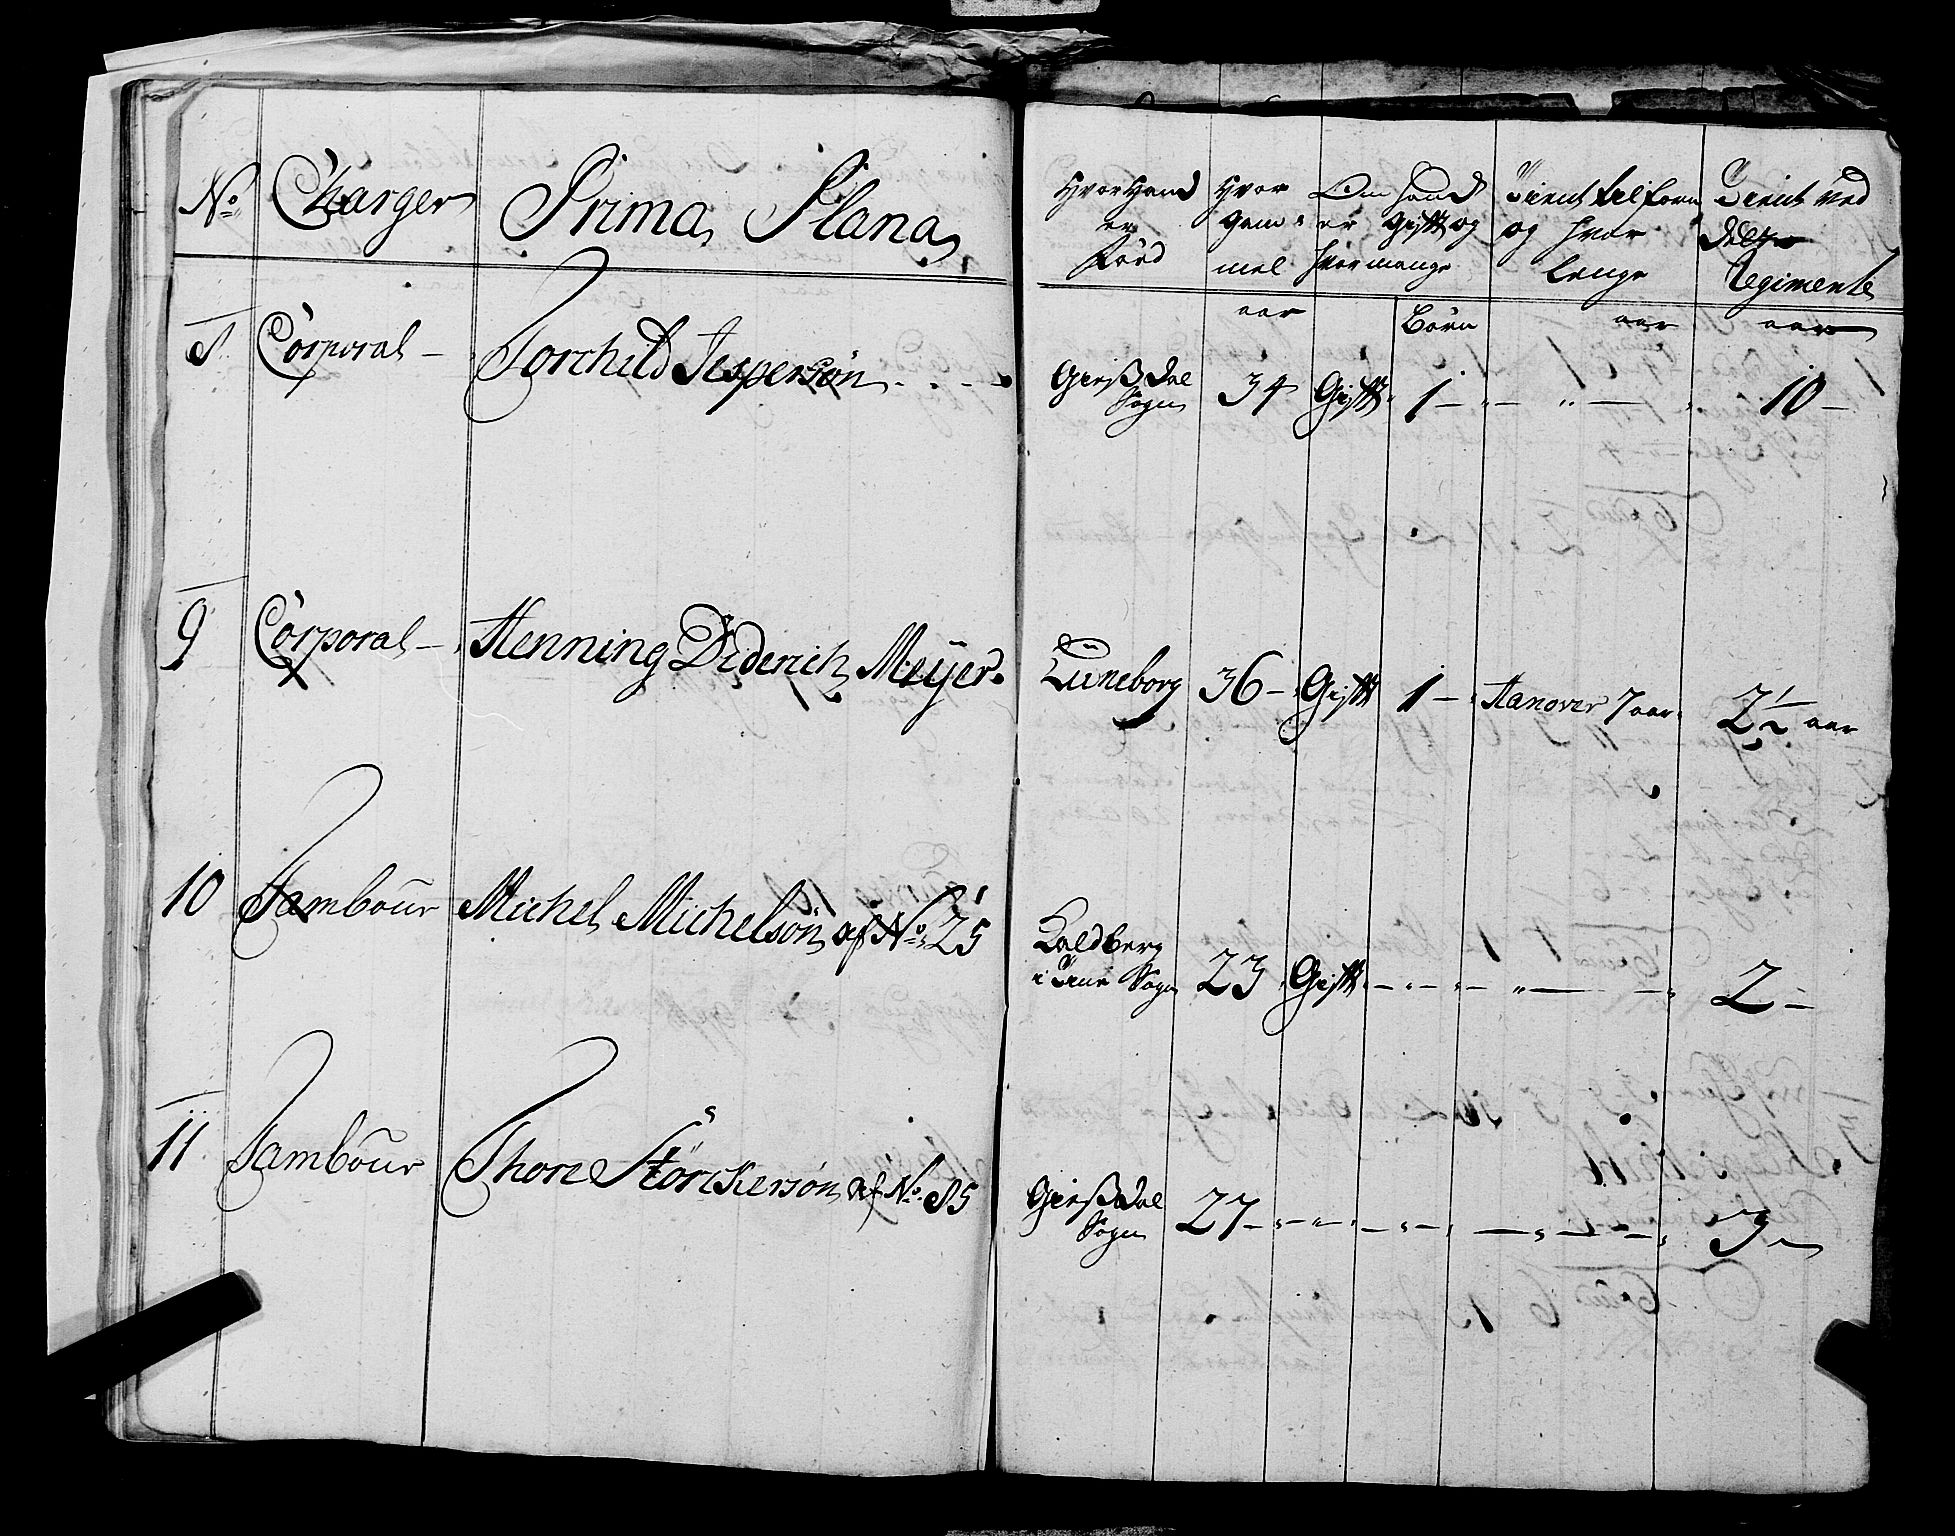 No Charger Prima Plana
Hvor Hand er Född
Hvor gam mel
Om hand er gifft og hvor mange
Tient tilforn og hvor lenge
Tient ved dette Regimente
aar Börn aar aar
8 Corporal – Torchild Jespersøn
Gierßdal Sogn 34 Gifft 1 – " – " – 10 –
9 Corporal – Henning Diderich Meÿer
Lüneborg 36 – Gifft 1 – Hanover 7 aar 2½ aar
10 Tambour Michel Michelsøn af No 25
Koldberg
i Sogn 23 Gifft – – – " – 2 –
11 Tambour Thore Störckersøn af No 85
Gierßdal
Sogn 27 – – – – – – – 3 –